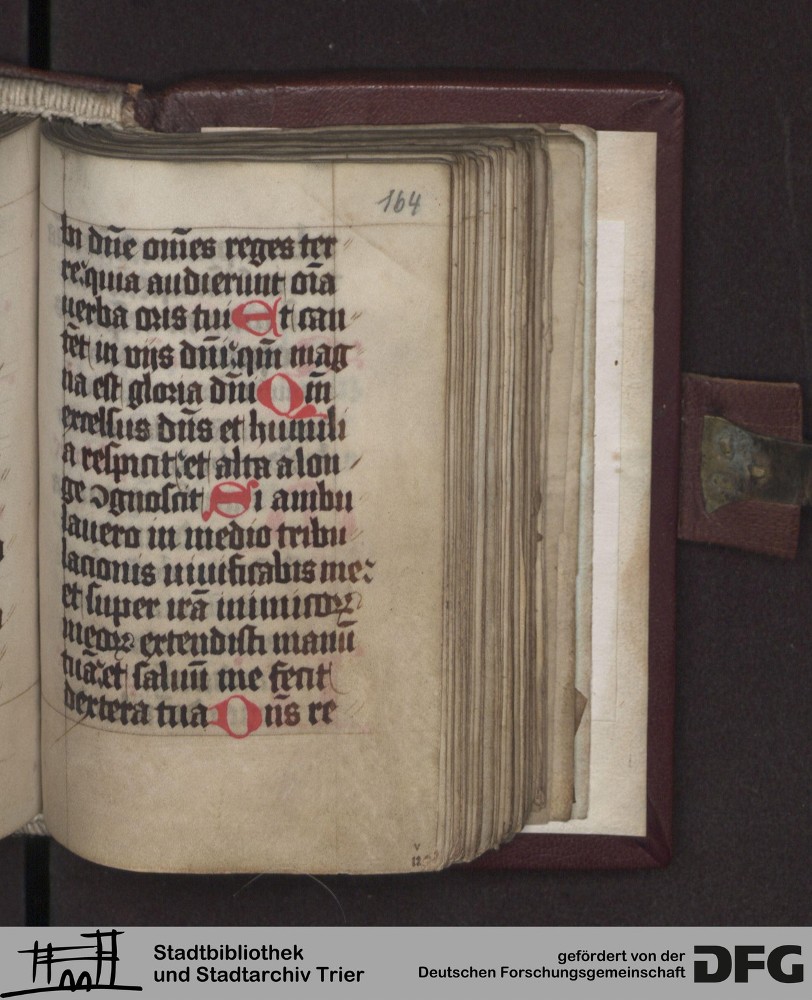 164
bi dn̄e om̄es reges ter
re: quia audierunt oīa
uerba oris tui Et can
tēt in viis dn̄i: qm̄ mag
na est gloria dn̄i Qm̄
excelsus dn̄s et humili
a respicit: et alta a lon
ge ꝯgnoscit Si ambu
lauero in medio tribu
lacionis uiuificabis me:
et super irā inimicoꝝ
meoꝝ extendisti manū
tuā: et saluū me fecit
dextera tua Dn̄s re
Stadtbibliothek
und Stadtarchiv Trier
gefördert von der
Deutschen Forschungsgemeinschaft
DFG